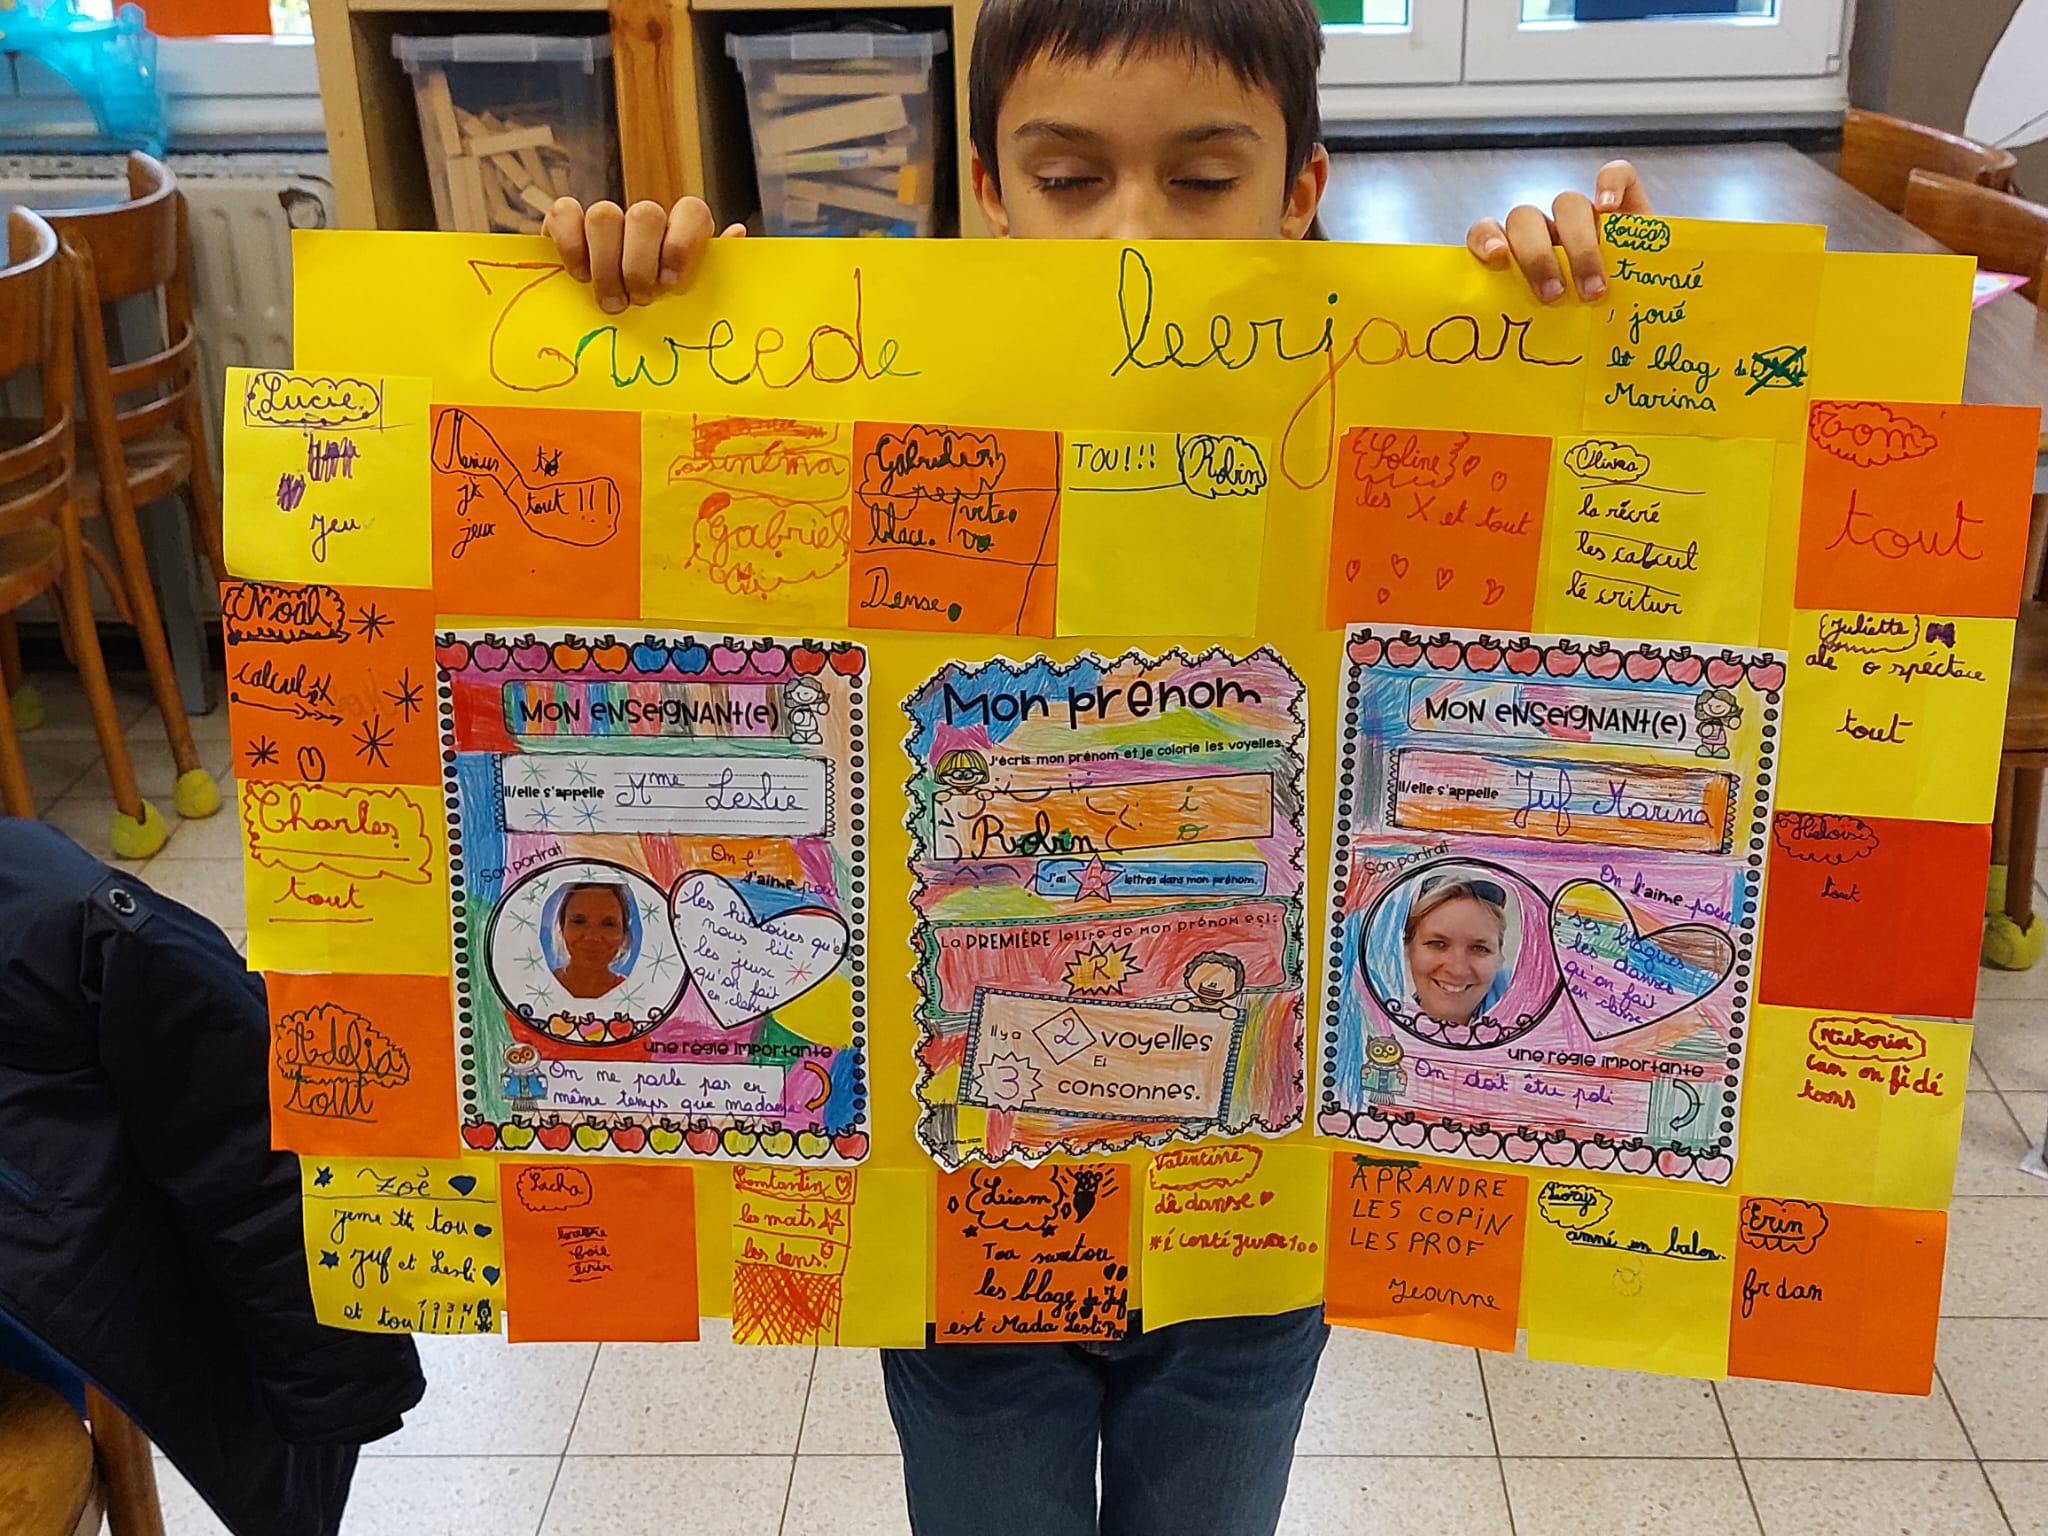 Tweede leerjaar
Loucas
travaié
joué
le blag de
Marina
Lucie
jeu
Marius
je
jeux
tout !!!
cinéma
Gabriel
Gabriel
blace.
Dense
TOU!!! Robin
Soline
les X et tout
Olivia
la récré
les calcul
lé critur
Tom
tout
Noah
calcul
Charles
tout
Adelia
tout
Juliette
alé o spéctace
tout
Héloïse
tout
Victoria
can on fè dé
tours
MON ENSEIGNANT(E)
Il/elle s'appelle Mme Leslie
Son portrait
On l'aime pour
les histoires qu'elle
nous lit
les jeux
qu'on fait
en classe
une règle importante
On ne parle pas en
même temps que madame
Mon prénom
J'écris mon prénom et je colorie les voyelles.
Robin
i
o
J'ai 5 lettres dans mon prénom.
La PREMIÈRE lettre de mon prénom est:
R
Il y a 2 voyelles
Et
3 consonnes.
MON ENSEIGNANT(E)
Il/elle s'appelle Juf Marina
Son portrait
On l'aime pour
ses blagues
les danses
qu'on fait
en classe
une règle importante
On doit être poli
Zoé
Jeme tou
Juf et Lesli
et tou
Sacha
Constantin
les mats
les dens
Liam
Tou surtou
les blags de Juf
est Mada Lesli
Valentine
dê danse
é conté jusca 100
APRANDRE
LES COPIN
LES PROF
Jeanne
Lorys
amné on balon.
Erin
fr dan